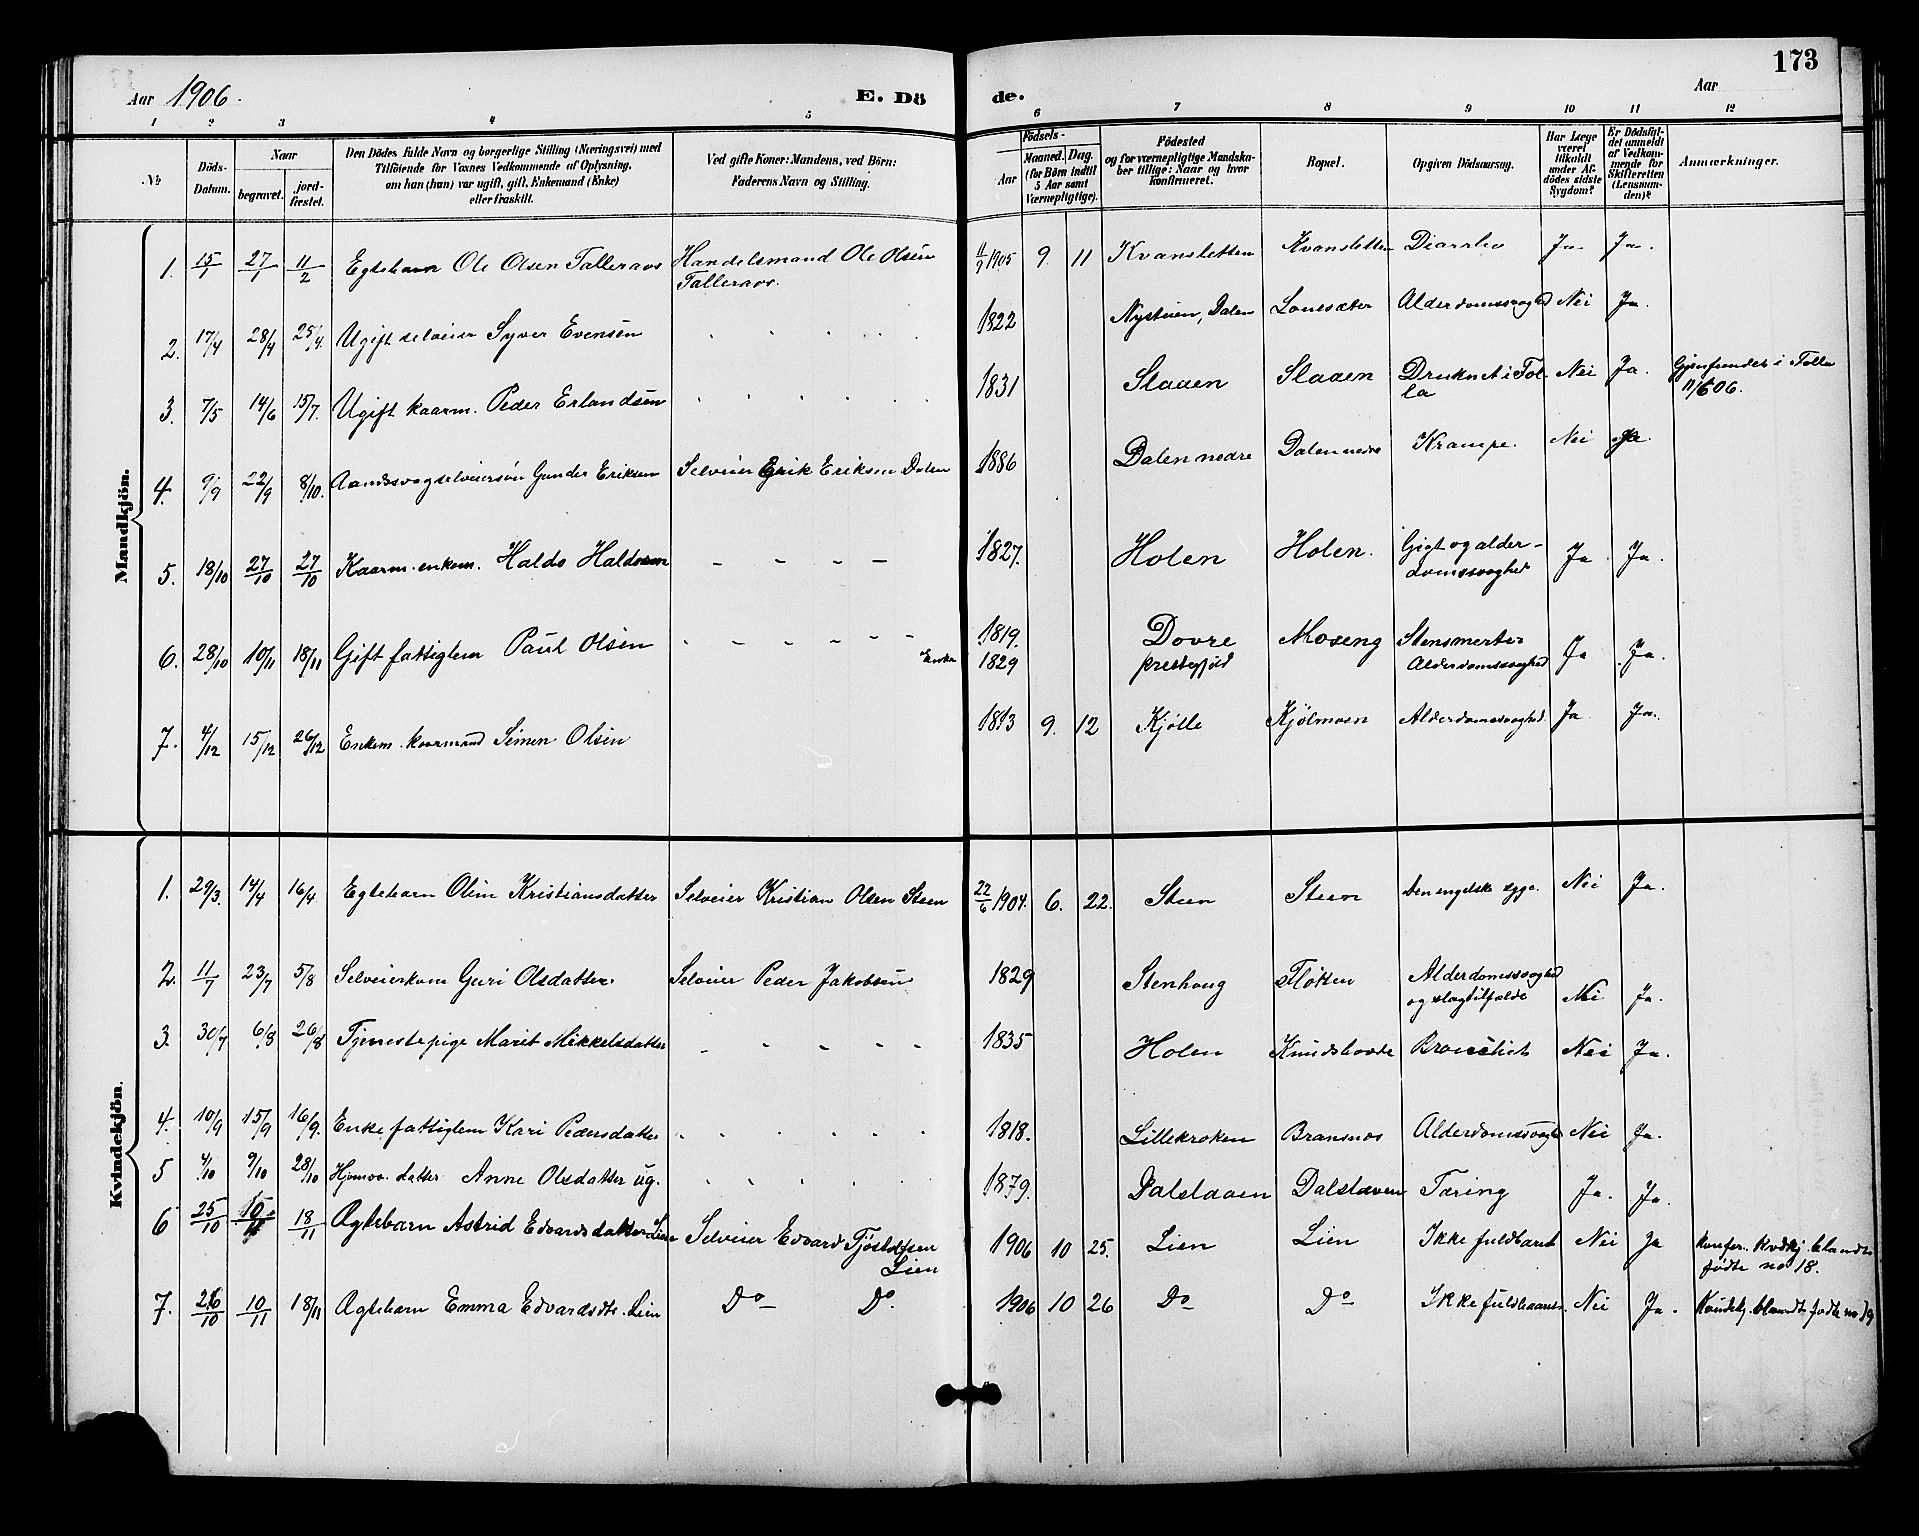 173
Aar 1906. E. Dö de. Aar
1 2 3 4 5 6 7 8 9 10 11 12
№
Döds-
Datum.
Naar
begravet.
jord-
fæstet.
Den Dödes fulde Navn og borgerlige Stilling (Næringsvei) med
Tilföiende for Voxnes Vedkommende af Oplysning,
om han (hun) var ugift, gift, Enkemand (Enke)
eller fraskilt.
Ved gifte Koner: Mandens, ved Börn:
Faderens Navn og Stilling.
Födsels-
Aar
Maaned. Dag.
(for Börn indtil
5 Aar samt
Værnepligtige).
Födested
og for værnepligtige Mandska-
ber tillige: Naar og hvor
konfirmeret.
Bopæl.
Opgiven Dödsaarsag.
Har Læge
været
tilkaldt
under Af-
dödes sidste
Sygdom?
Er Dödsfal-
det anmeldt
af Vedkom-
mende for
Skifteretten
(Lensman-
den)?
Anmærkninger.
Mandkjön.
1. 15/1 27/1 11/2 Egtebarn Ole Olsen Talleraas Handelsmand Ole Olsen 11/9 1905 9. 11 Kvansletten Kvansletten Diarrho Ja Ja.
Talleraas.
2. 17/4 28/4 25/4. Ugift selveier Syver Evensen 1822 Nystuen, Dalen Lonesæter Alderdomssvaghed Nei Ja.
3. 7/5 14/6 15/7. Ugift kaarm. Peder Erlandsen 1831 Slaaen Slaaen Druknet i Fol- Nei Ja. Gjenfunden i Folla
la 11/6 06.
4. 9/9 22/9 8/10. Aandssvag selveiersøn Gunder Eriksen Selveier Erik Eriksen Dalen 1886 Dalen nedre Dalen nedre Krampe. Nei Ja.
5. 18/10 27/10 27/10 Kaarm. enkem. Haldo Haldosen 1827. Holen Holen. Gigt og alder- Ja Ja.
domssvaghed
6. 28/10 10/11 18/11 Gift fattiglem Paul Olsen 1819. Dovre Moseng Stensmerter Ja Ja.
1829 prestegjeld Alderdomssvaghed
7. 4/12 15/12 26/12 Enkem. kaarmand Simen Olsen 1813 9. 12 Kjølle Kjølmoen Alderdomssvaghed. Ja Ja.
Kvindekjön.
1. 29/3. 14/4 16/4 Egtebarn Oline Kristiansdatter Selveier Kristian Olsen Steen 22/6 1904. 6. 22. Steen Steen Den engelske syge. Nei Ja.
2. 11/7 23/7 5/8 Selveierkone Guri Olsdatter. Selveier Peder Jakobsen 1829 Stenhoug Fløtten Alderdomssvaghed
og slagtilfælde Nei Ja.
3. 30/7 6/8 26/8 Tjenestepige Marit Mikkelsdatter 1835 Holen Knudshovde Bronchit Nei Ja.
4. 10/9 15/9 16/9. Enke fattiglem Kari Pedersdatter 1818. Lillekroken Bransnos Alderdomssvagh Nei Ja.
5 4/10 9/10 28/10 Hjemmv. datter Anne Olsdatter ug. 1879. Dalslaaen Dalslaaen Tæring Ja. Ja.
6 25/10 10/11 18/11 Ægtebarn Astrid Edvardsdatter Lien Selveier Edvard Tjøstolfsen 1906 10 25. Lien Lien Ikke fuldbaaret Nei Ja konfer. Kvdkj. blandt
Lien fødte no 18.
7. 26/10 10/11 18/11 Ægtebarn Emma Edvardsdtr. Lien Do Do. 1906 10 26 Do Do Ikke fuldbaaret. Nei Ja. Kvindekj. blandt fødte no 19